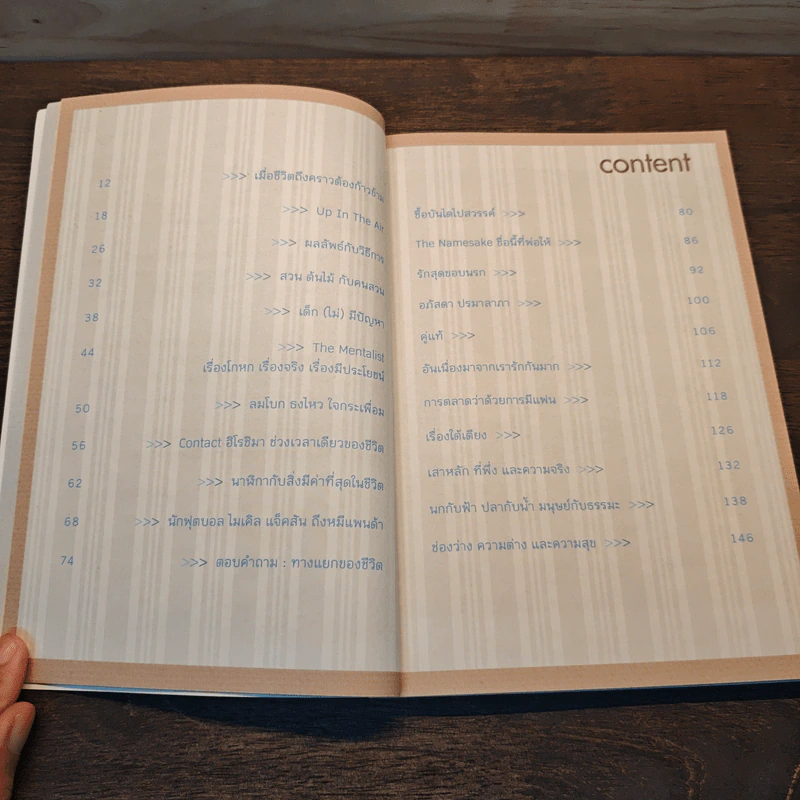 12 >>> เมื่อชีวิตถึงคราวต้องก้าวข้าม
18 >>> Up In The Air
26 >>> ผลลัพธ์กับวิธีการ
32 >>> สวน ต้นไม้ กับคนสวน
38 >>> เด็ก (ไม่) มีปัญหา
44 >>> The Mentalist
เรื่องโกหก เรื่องจริง เรื่องมีประโยชน์
50 >>> ลมโบก ธงไหว ใจกระเพื่อม
56 >>> Contact ฮิโรชิมา ช่วงเวลาเดียวของชีวิต
62 >>> นาฬิกากับสิ่งมีค่าที่สุดในชีวิต
68 >>> นักฟุตบอล ไมเคิล แจ็คสัน ถึงหมีแพนด้า
74 >>> ตอบคำถาม : ทางแยกของชีวิต
content
ซื้อบันไดไปสวรรค์ >>> 80
The Namesake ชื่อนี้ที่พ่อให้ >>> 86
รักสุดขอบนรก >>> 92
อภัสดา ปรมาลาภา >>> 100
คู่แท้ >>> 106
อันเนื่องมาจากเรารักกันมาก >>> 112
การตลาดว่าด้วยการมีแฟน >>> 118
เรื่องใต้เตียง >>> 126
เสาหลัก ที่พึ่ง และความจริง >>> 132
นกกับฟ้า ปลากับน้ำ มนุษย์กับธรรมะ >>> 138
ช่องว่าง ความต่าง และความสุข >>> 146